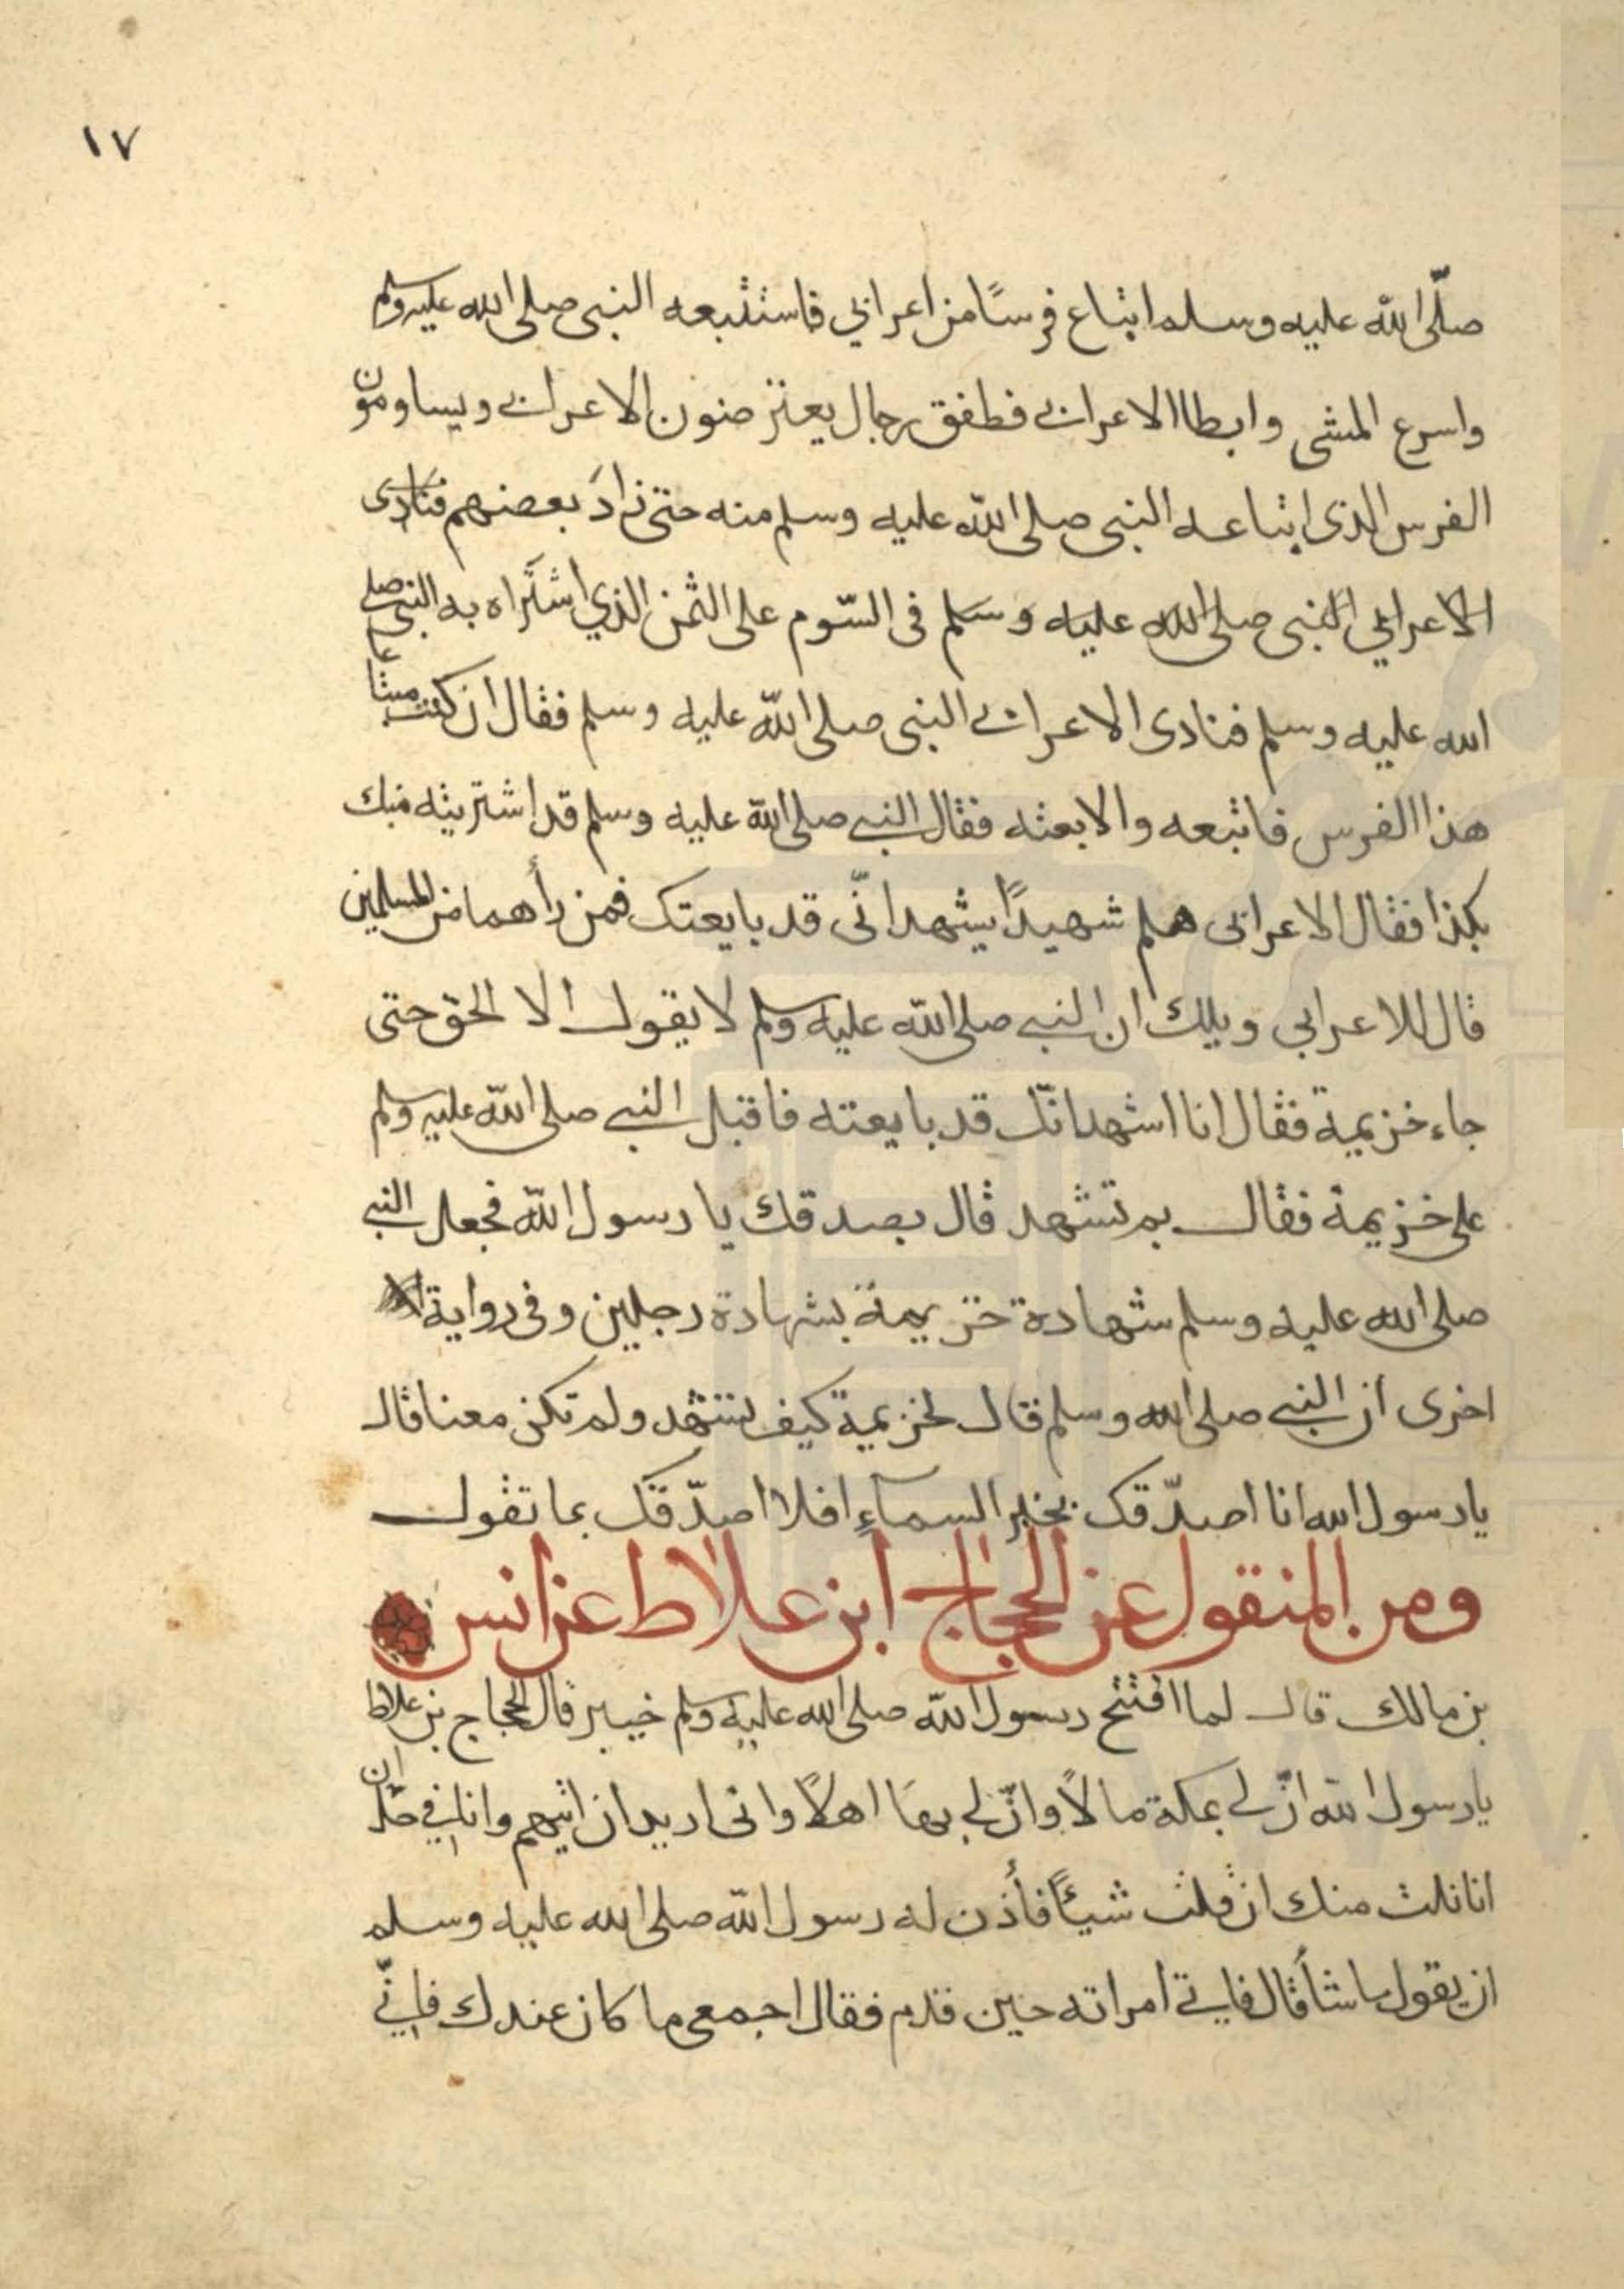 ١٧
صلّى الله عليه وسلم ابتاع فرسًا من اعرابي فاستتبعه النبي صلى الله عليه وسلم
واسرع المشي وابطا الاعرابي فطفق رجال يعترضون الاعرابي ويساومون
الفرس الذي ابتاعه النبي صلى الله عليه وسلم منه حتى زادَ بعضهم فنادى
الاعرابي النبي صلى الله عليه وسلم في السّوم على الثمن الذي اشتَراه به النبي صلى
الله عليه وسلم فنادى الاعرابي النبي صلى الله عليه وسلم فقال ان كنت مبتاعا
هذا الفرس فاتبعه والا بعته فقال النبي صلى الله عليه وسلم قد اشتريته منك
بكذا فقال الاعرابي هلم شهيدًا يشهد انّى قد بايعتك فمن رأهما من المسلمين
قال للاعرابي ويلك ان النبي صلى الله عليه وسلم لا يقول الا الحق حتى
جاء خزيمة فقال انا اشهد انّك قد بايعته فاقبل النبي صلى الله عليه وسلم
على خزيمة فقال بم تشهد قال بصدقك يا رسول الله فجعل النبي
صلى الله عليه وسلم شهادة خزيمة بشهادة رجلين وفي رواية
اخرى ان النبي صلى الله وسلم قال لخزيمة كيف تشهد ولم تكن معنا قال
يا رسول الله انا اصدّقك بخبر السماءِ افلا اصدّقك بما تقول
ومن المنقول عن الحجاج ابن علاط عن انس
بن مالك قال لما افتتح رسول الله صلى الله عليه وسلم خيبر قال الحجاج بن علاط
يا رسول الله انّ لي بمكة مالاً وانّ لي بها اهلاً واني اريد ان اتيهم وانا في حلّ ان
انا نلت منك ان قلت شيئاً فأذن له رسول الله صلى الله عليه وسلم
ان يقول ما شأ قال فاتى امراته حين قدم فقال اجمعي ما كان عندك فانّي